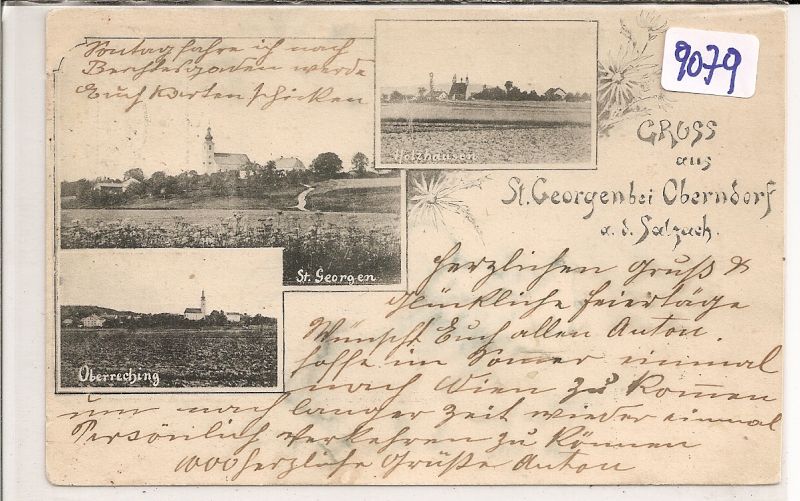 9079
Sontag fahre ich nach
Berchtesgaden werde
Euch Karten schicken
Holzhausen
GRUSS
aus
St. Georgen bei Oberndorf
a. d. Salzach.
St. Georgen
Oberreching
Herzlichen Gruß &
Glückliche Feiertäge
Wünscht Euch allen Anton.
hoffe im Somer einmal
nach Wien zu komen
um nach langer Zeit wieder einmal
Persönlich verkehren zu können
1000 herzliche Grüße Anton